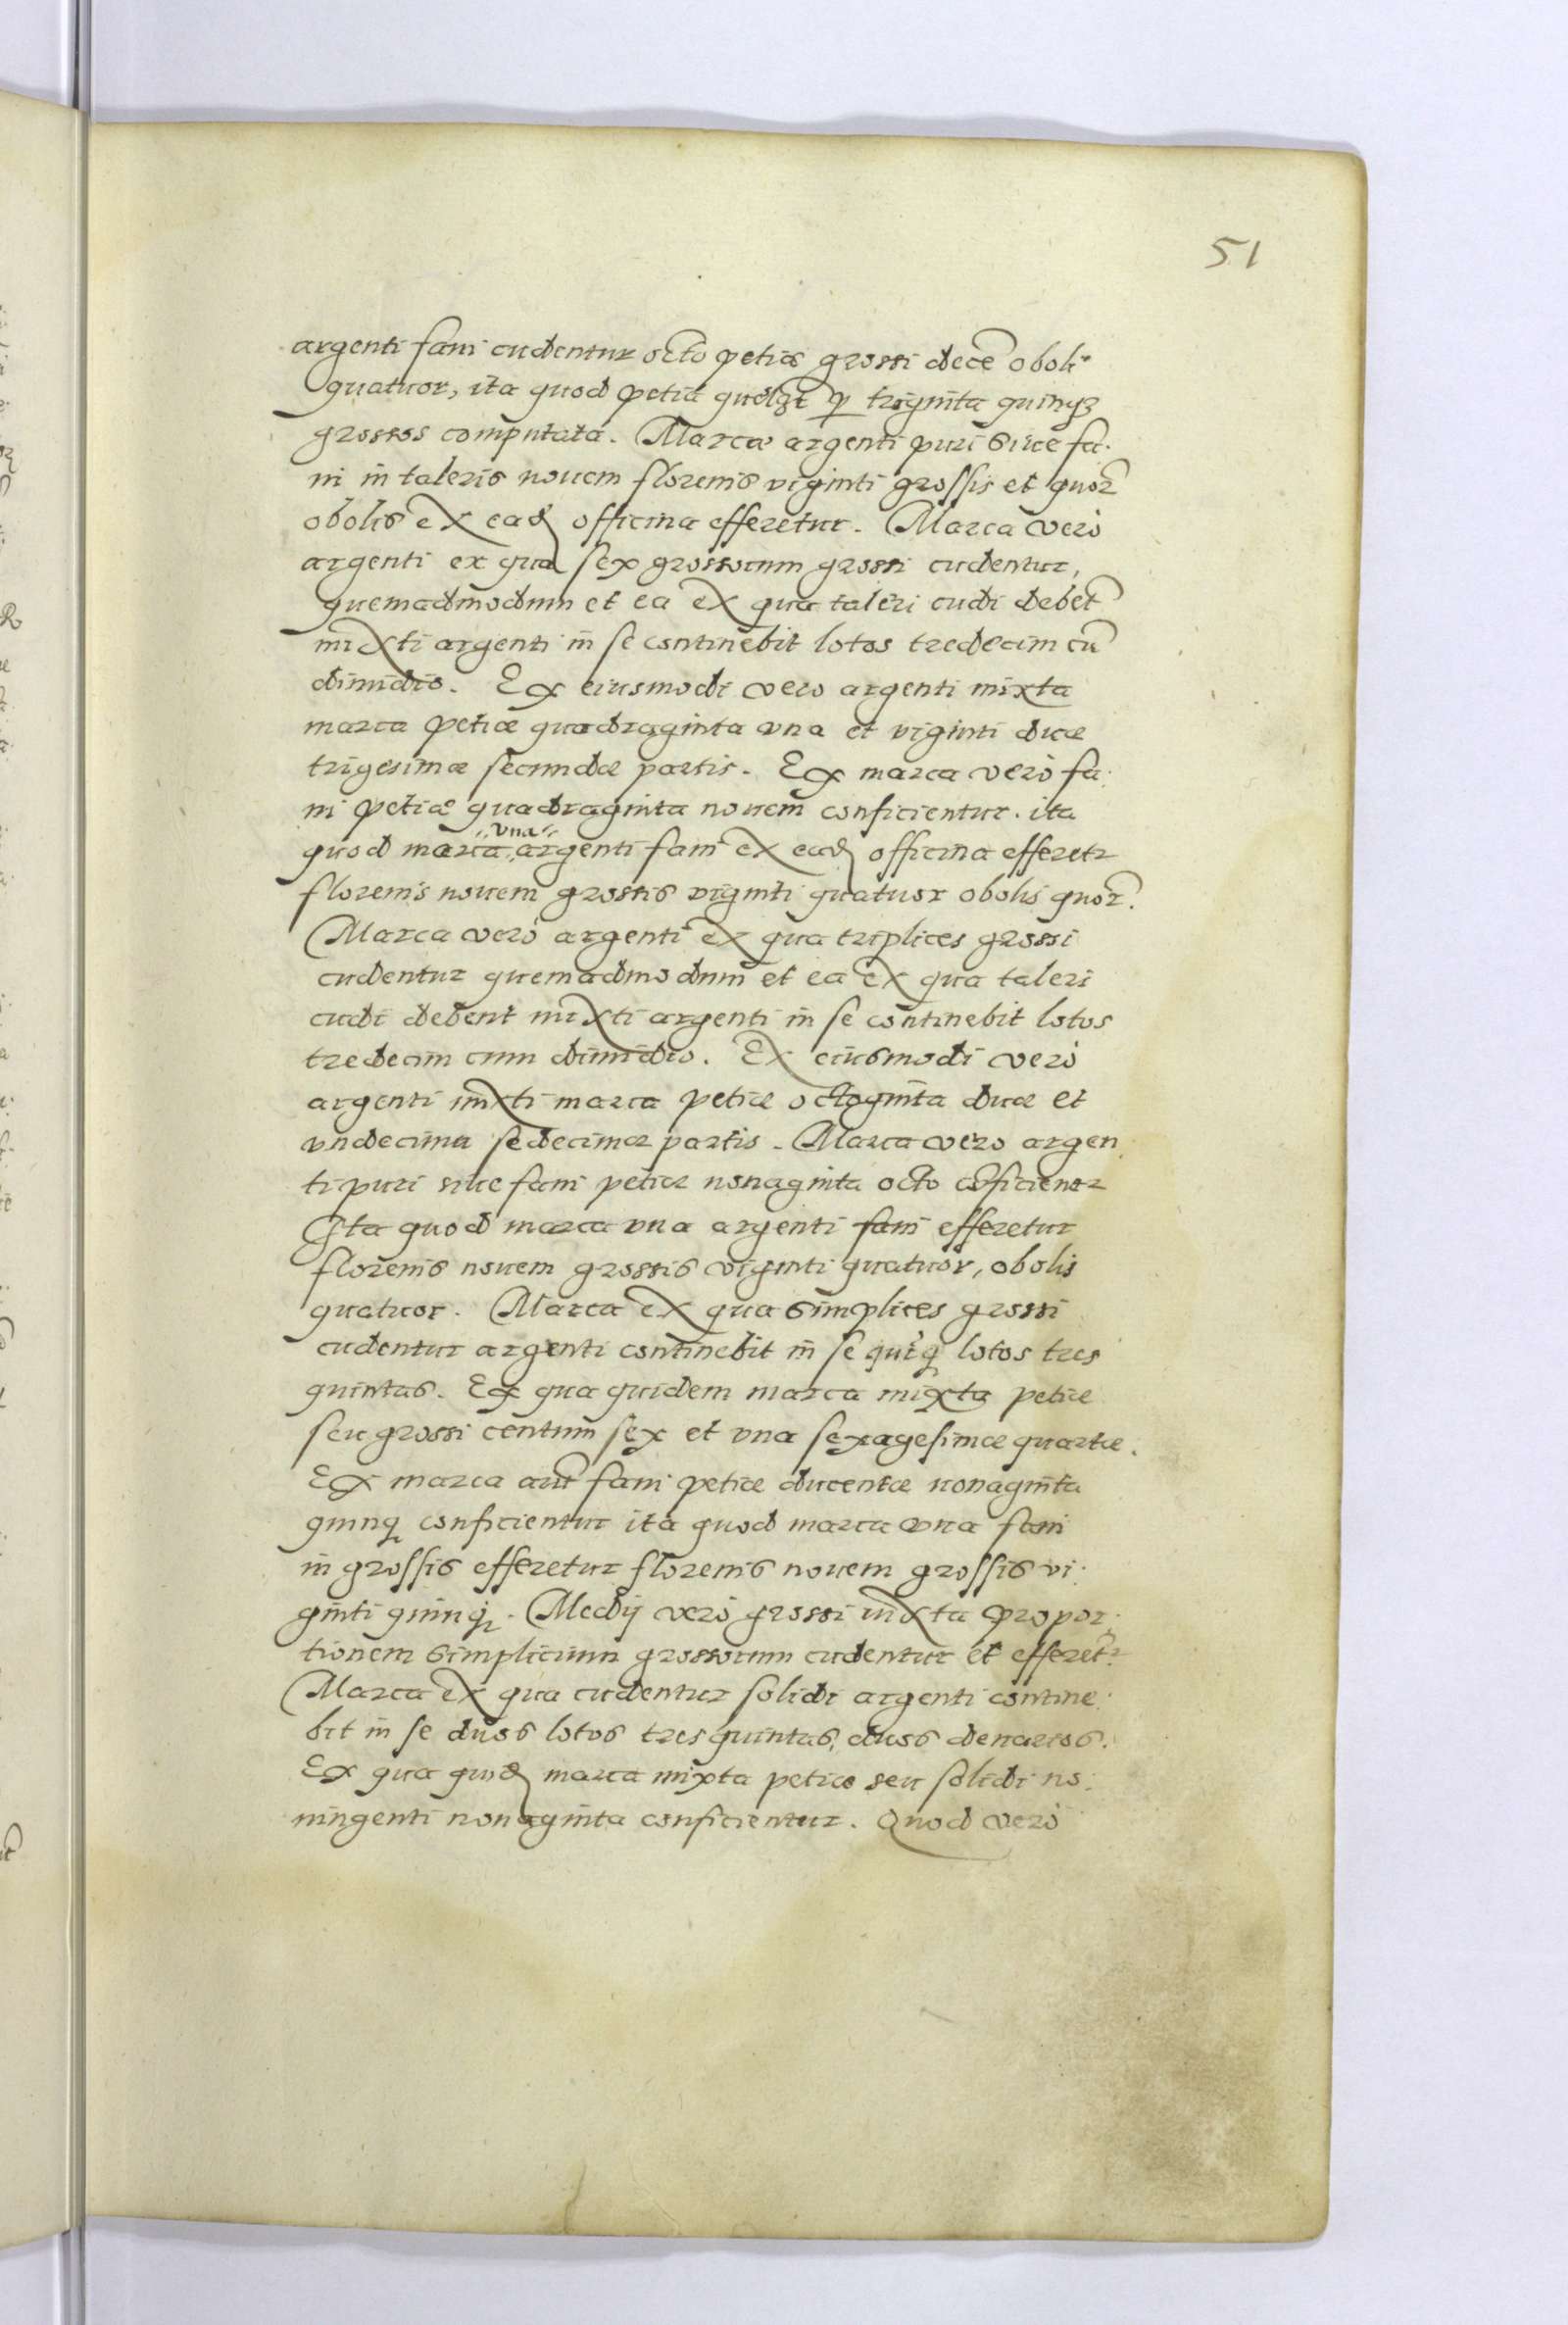 51
argenti fani cudentur octo petiæ grossi decē oboli
quatuor, ita quod petia quęlꝫt ꝑ triginta quinqꝫ
grossos computata. Marca argenti puri siue fa.
ni in taleris nouem florenis viginti grossis et quor̄
obolis ex ead officina efferetur. Marca vero
argenti ex qua sex grossorum grossi cudentur,
quemadmodum et ea ex qua taleri cudi debēt
mixti argenti in se continebit lotos tredecim cū
dimidio. Ex eiusmodi vero argenti mixta
marca petiæ quadraginta vna et viginti duæ
trigesimæ secundæ partis. Ex marca vero fa.
ni petiæ quadraginta nouem conficientur. ita
quod marca vna argenti fani ex ead officina efferetr
florenis nouem grossis viginti quatuor obolis quor̄.
Marca vero argenti ex qua triplices grossi
cudentur quemadmodum et ea ex qua taleri
cudi debent mixti argenti in se continebit lotos
tredecim cum dimidio. Ex eiusmodi vero
argenti mixti marca petiæ octoginta duæ et
vndecima sedecimæ partis. Marca vero argen
ti puri siue fani petiæ nonaginta octo cōficientr
Ita quod marca vna argenti fani efferetur
florenis nouem grossis viginti quatuor, obolis
quatuor. Marca ex qua simplices grossi
cudentur argenti continebit in se quīq lotos tres
quintas. Ex qua quidem marca mixta petiæ
seu grossi centum sex et vna sexagesimæ quartæ.
Ex marca aut̄ fani petiæ ducentæ nonaginta
quinq conficientur ita quod marca vna fani
in grossis efferetur florenis nouem grossis vi.
ginti quinq. Medij vero grossi iuxta propor.
tionem simplicium grossorum cudentur et efferetr
Marca ex qua cudentur solidi argenti contine.
bit in se duos lotos tres quintas, duos denarios.
Ex qua quid marca mixta petiæ seu solidi no.
ningenti nonaginta conficientur. Quod vero